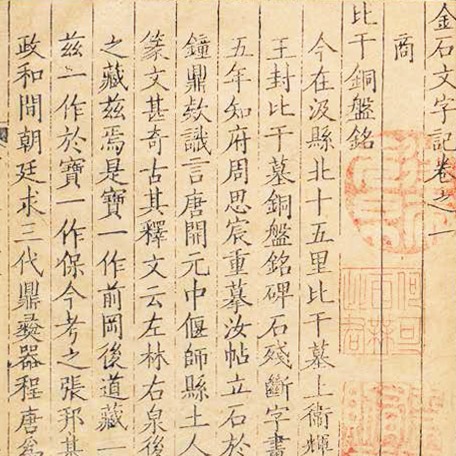 金石文字記卷之一
商
比干銅盤銘
今在汲縣北十五里比干墓上衞輝
王封比干墓銅盤銘碑石殘斷字畫
五年知府周思宸重摹汝帖立石於
鐘鼎欵識言唐開元中偃師縣土人
篆文甚奇古其釋文云左林右泉後
之藏茲焉是寶一作前岡後道藏一
茲一作於寶一作保今考之張邦基
政和間朝廷求三代鼎彝器程唐爲